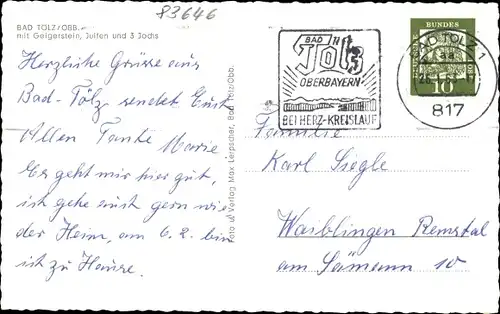 83646
BAD TÖLZ/OBB.
mit Geigerstein, Juifen und 3 Jochs
Herzliche Grüsse aus
Bad-Tölz sendet Euch
Allen Tante Marie
Es geht mir hier gut,
ich gehe auch gern wie-
der Heim, am 6.2. bin
ich zu Hause.
Foto u. Verlag Max Lerpscher, Bad Tölz/Obb.
BAD
Tölz
OBERBAYERN
BEI HERZ-KREISLAUF
DEUTSCHE
BUNDES
10
BAD TÖLZ 1
817
Familie
Karl Siegle
Waiblingen Remstal
am Sämann 10